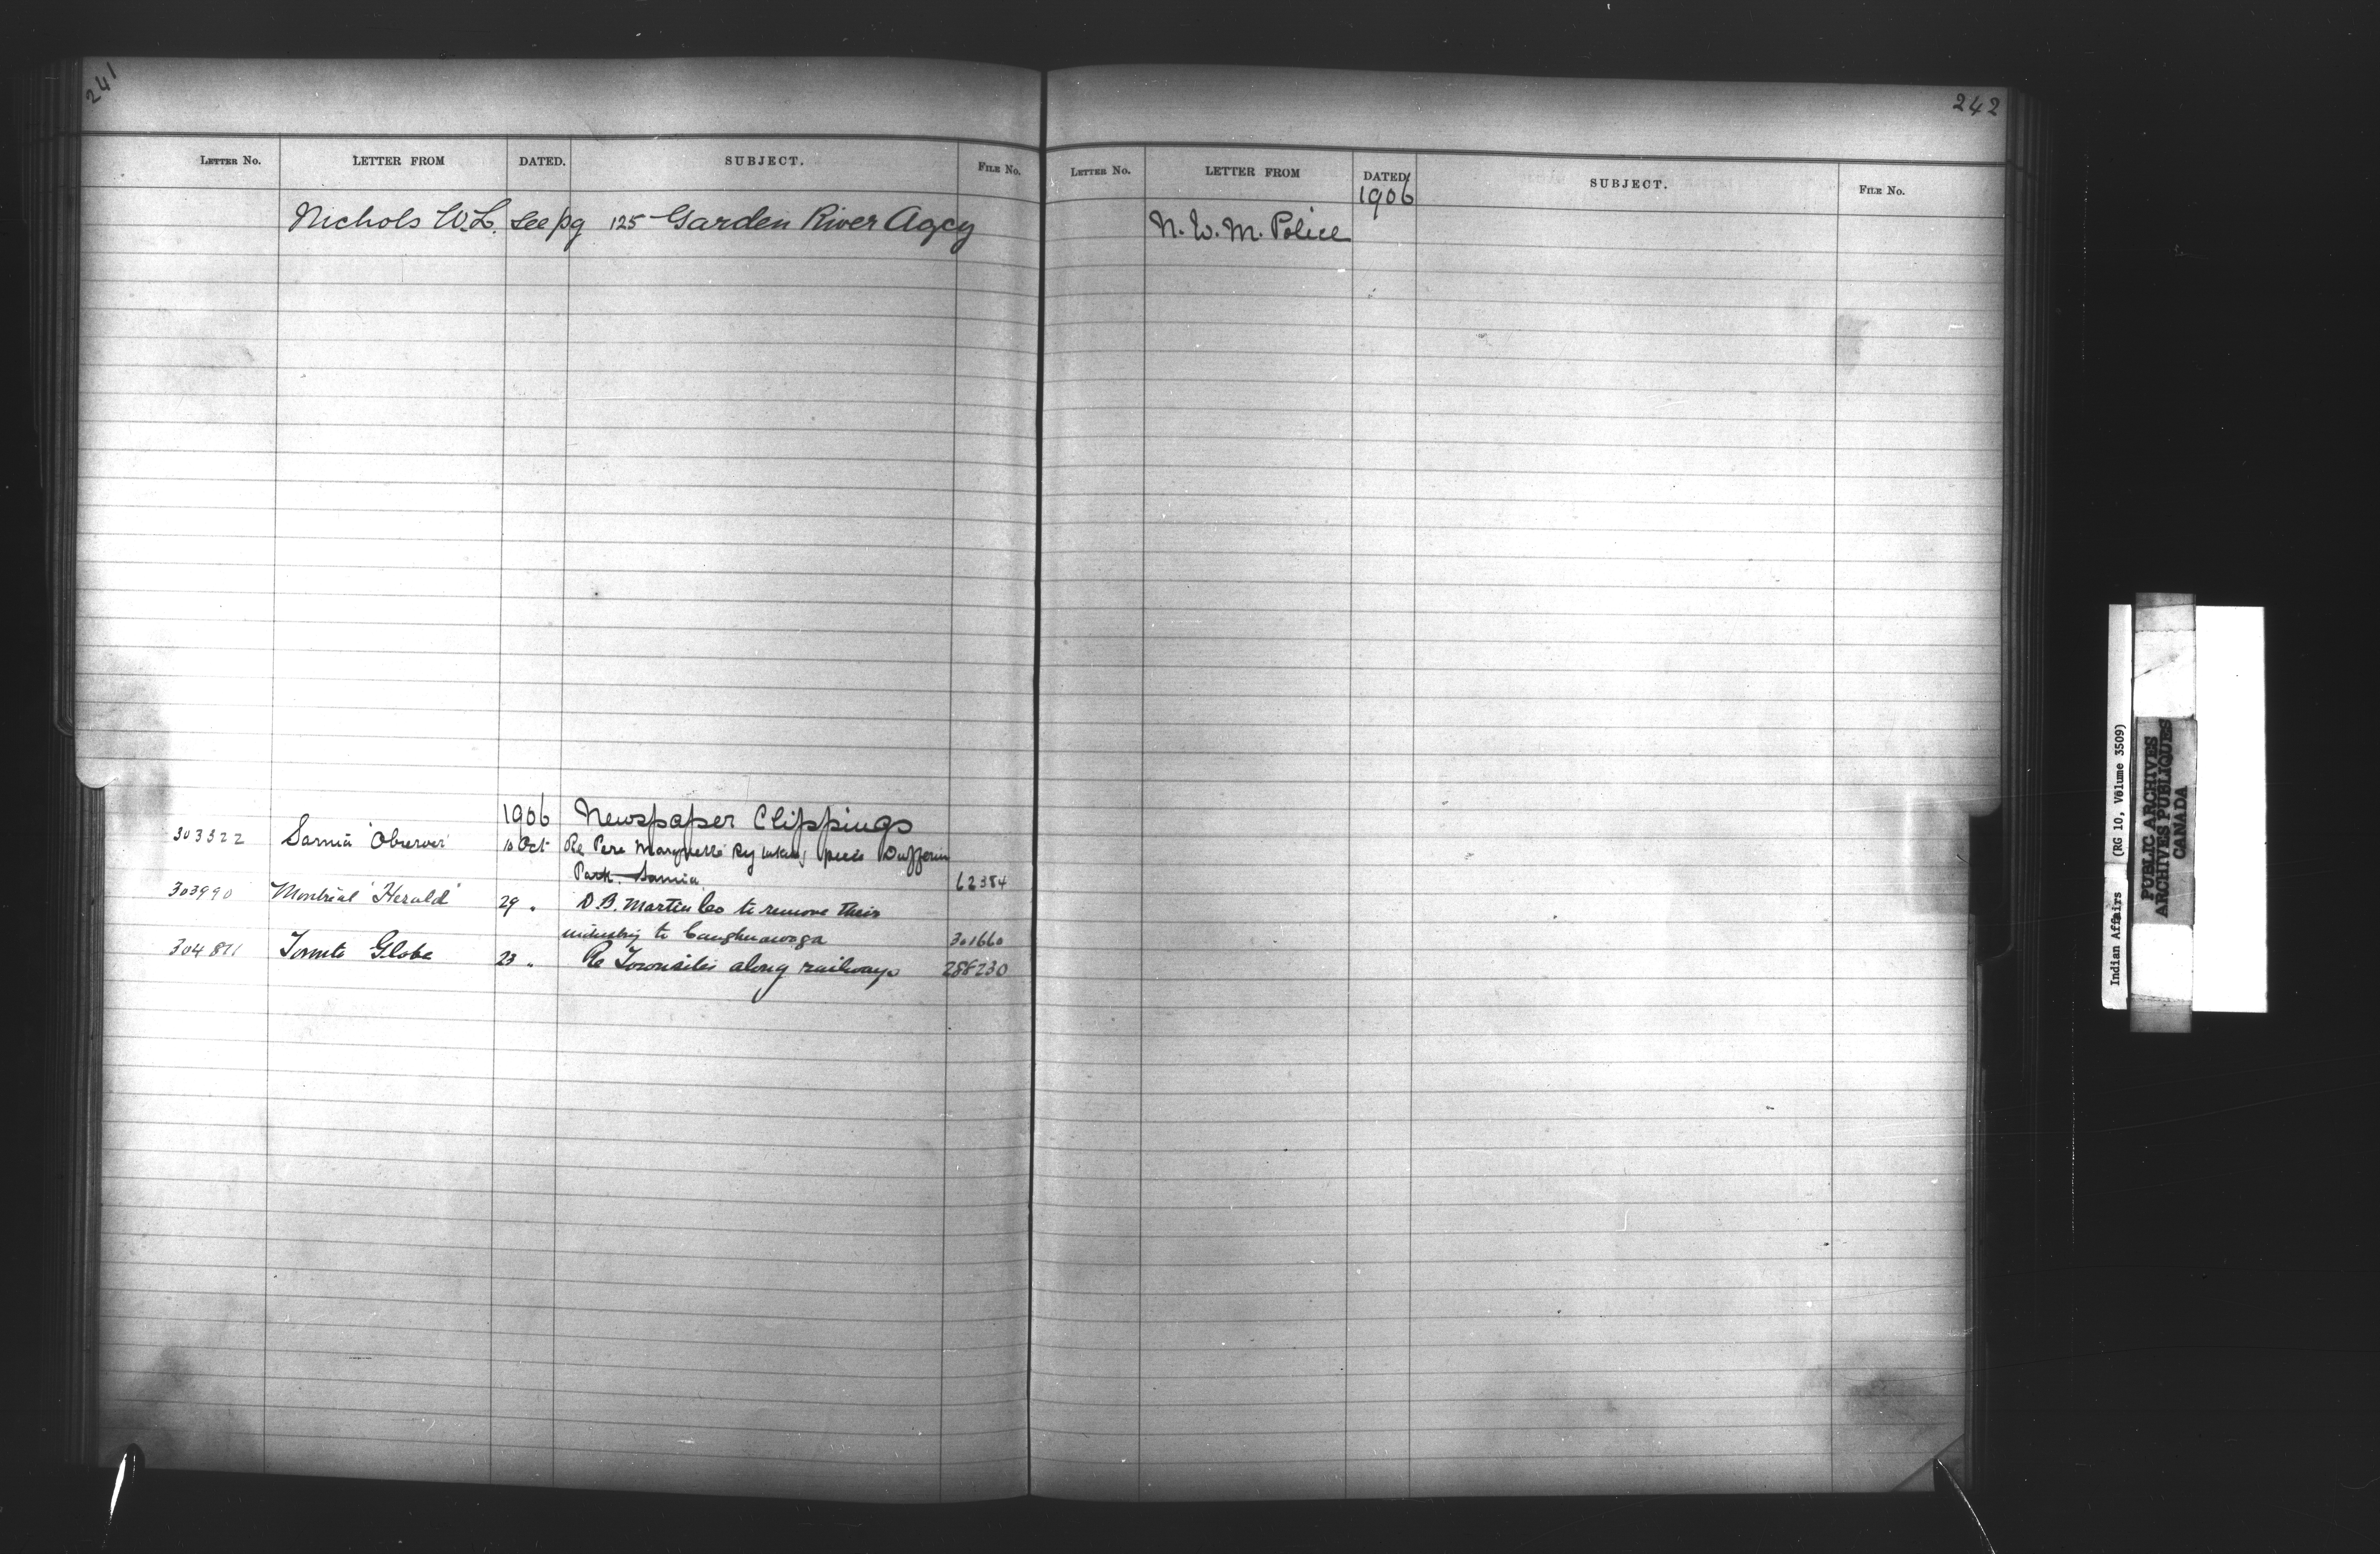 241
LETTER NO. LETTER FROM DATED. SUBJECT. FILE NO.
Nichols W.L. See pg 125 Garden River Agcy
1906 Newspaper Clippings
303322 Sarnia 'Observer' 10 Oct Re Pere Marquette Ry taking piece Dufferin
Park. Sarnia 62384
303990 Montreal 'Herald' 29 " D.B. Martin Co to remove their
industry to Caughnawaga 301660
304811 Toronto Globe 23 " Re Townsites along railways 288230
242
LETTER NO. LETTER FROM DATED. SUBJECT. FILE NO.
1906
N. W. M. Police
Indian Affairs (RG 10, Volume 3509)
PUBLIC ARCHIVES
ARCHIVES PUBLIQUES
CANADA